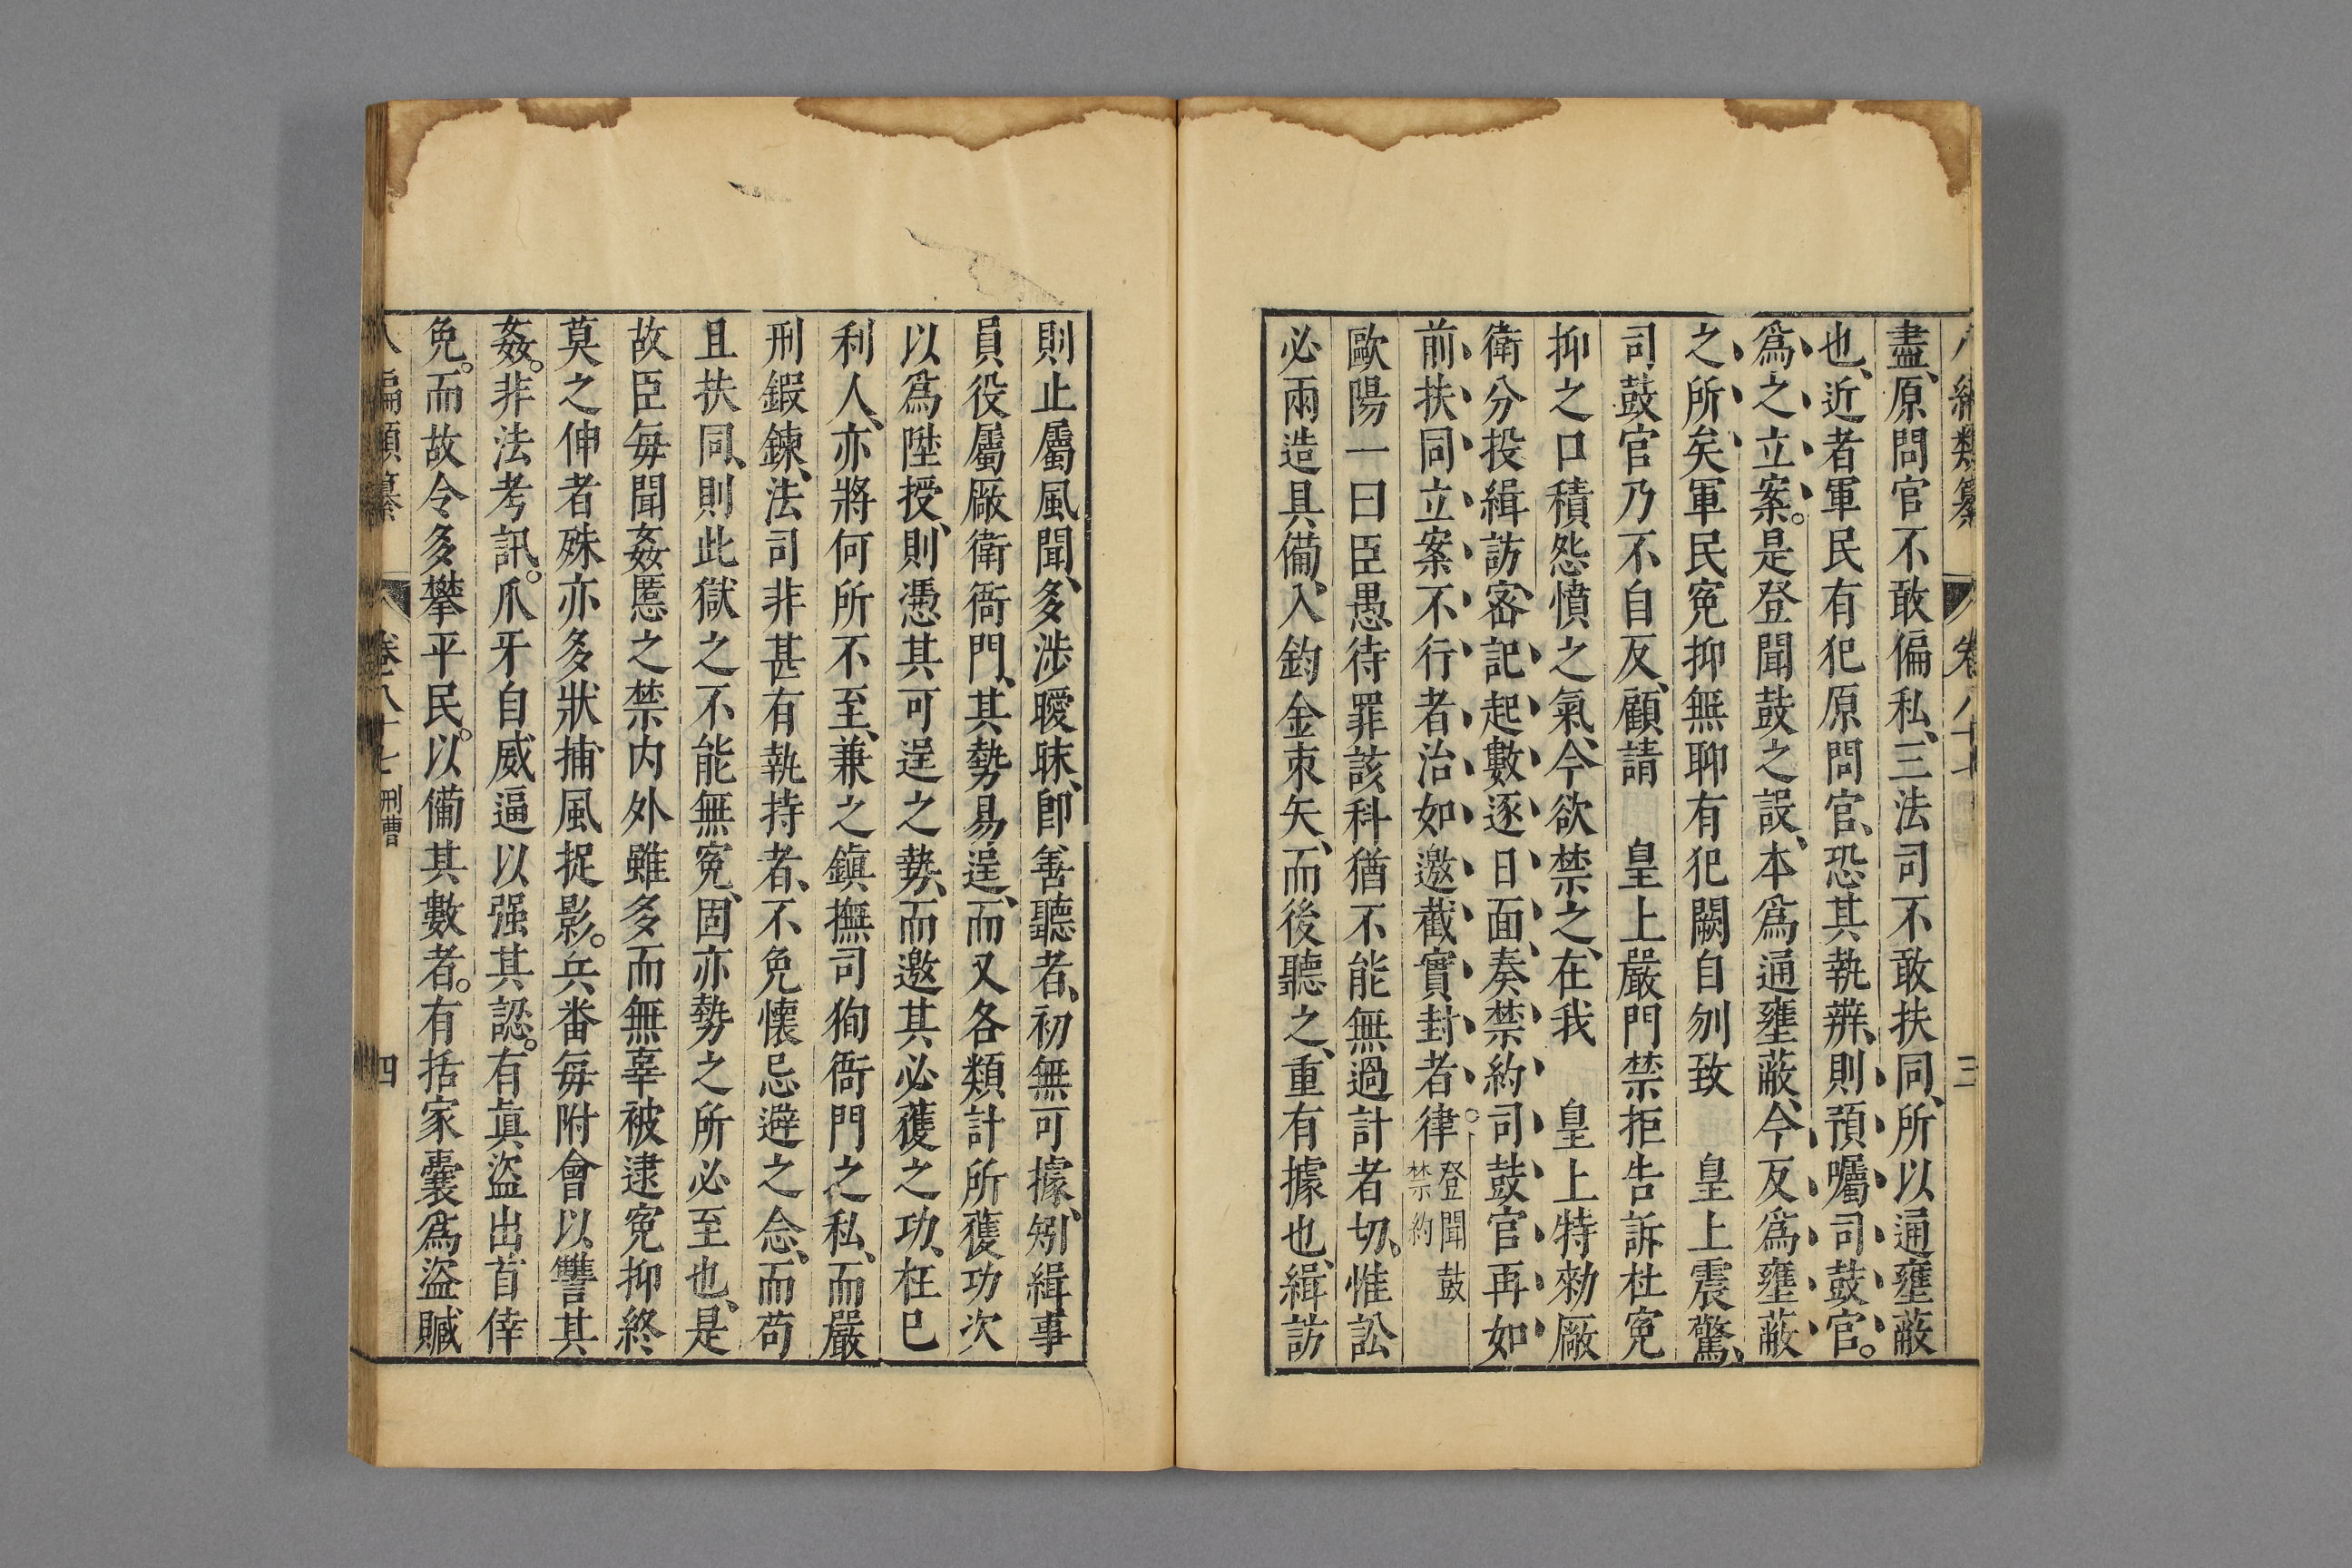 八編類纂 卷八十七 三
盡、原問官不敢偏私、三法司不敢扶同、所以通壅蔽
也、近者軍民有犯原問官、恐其執辨、則預囑司鼓官。
爲之立案。是登聞鼓之設、本爲通壅蔽、今反爲壅蔽
之所矣軍民寃抑無聊有犯闕自刎致 皇上震驚、
司鼓官乃不自反、顧請 皇上嚴門禁拒告訴杜寃
抑之口積怨憤之氣、今欲禁之、在我 皇上特勑厰
衛分投緝訪宻記起數逐日面奏禁約司鼓官再如
前扶同立案不行者治如邀截實封者律。登聞鼓禁約
歐陽一曰臣愚待罪該科猶不能無過計者切。惟訟
必兩造具備、入鈞金束矢、而後聽之、重有據也、緝訪
則止屬風聞、多涉曖昧、卽善聽者、初無可據、矧緝事
員役屬厰衛衙門、其勢易逞、而又各類計所獲功次
以爲陞授、則憑其可逞之勢、而邀其必獲之功、枉巳
利人、亦將何所不至、兼之鎮撫司狥衙門之私、而嚴
刑鍜鍊、法司非甚有執持者、不免懷忌避之念、而苟
且扶同、則此獄之不能無寃、固亦勢之所必至也、是
故臣每聞姦慝之禁内外雖多而無辜被逮寃抑終
莫之伸者殊亦多狀捕風捉影。兵畨每附會以讐其
姦。非法考訊。爪牙自威逼以强其認。有眞盜出首倖
免。而故令多攀平民。以備其數者。有括家囊爲盜贓
八編類纂 卷八十七 刑曹 四